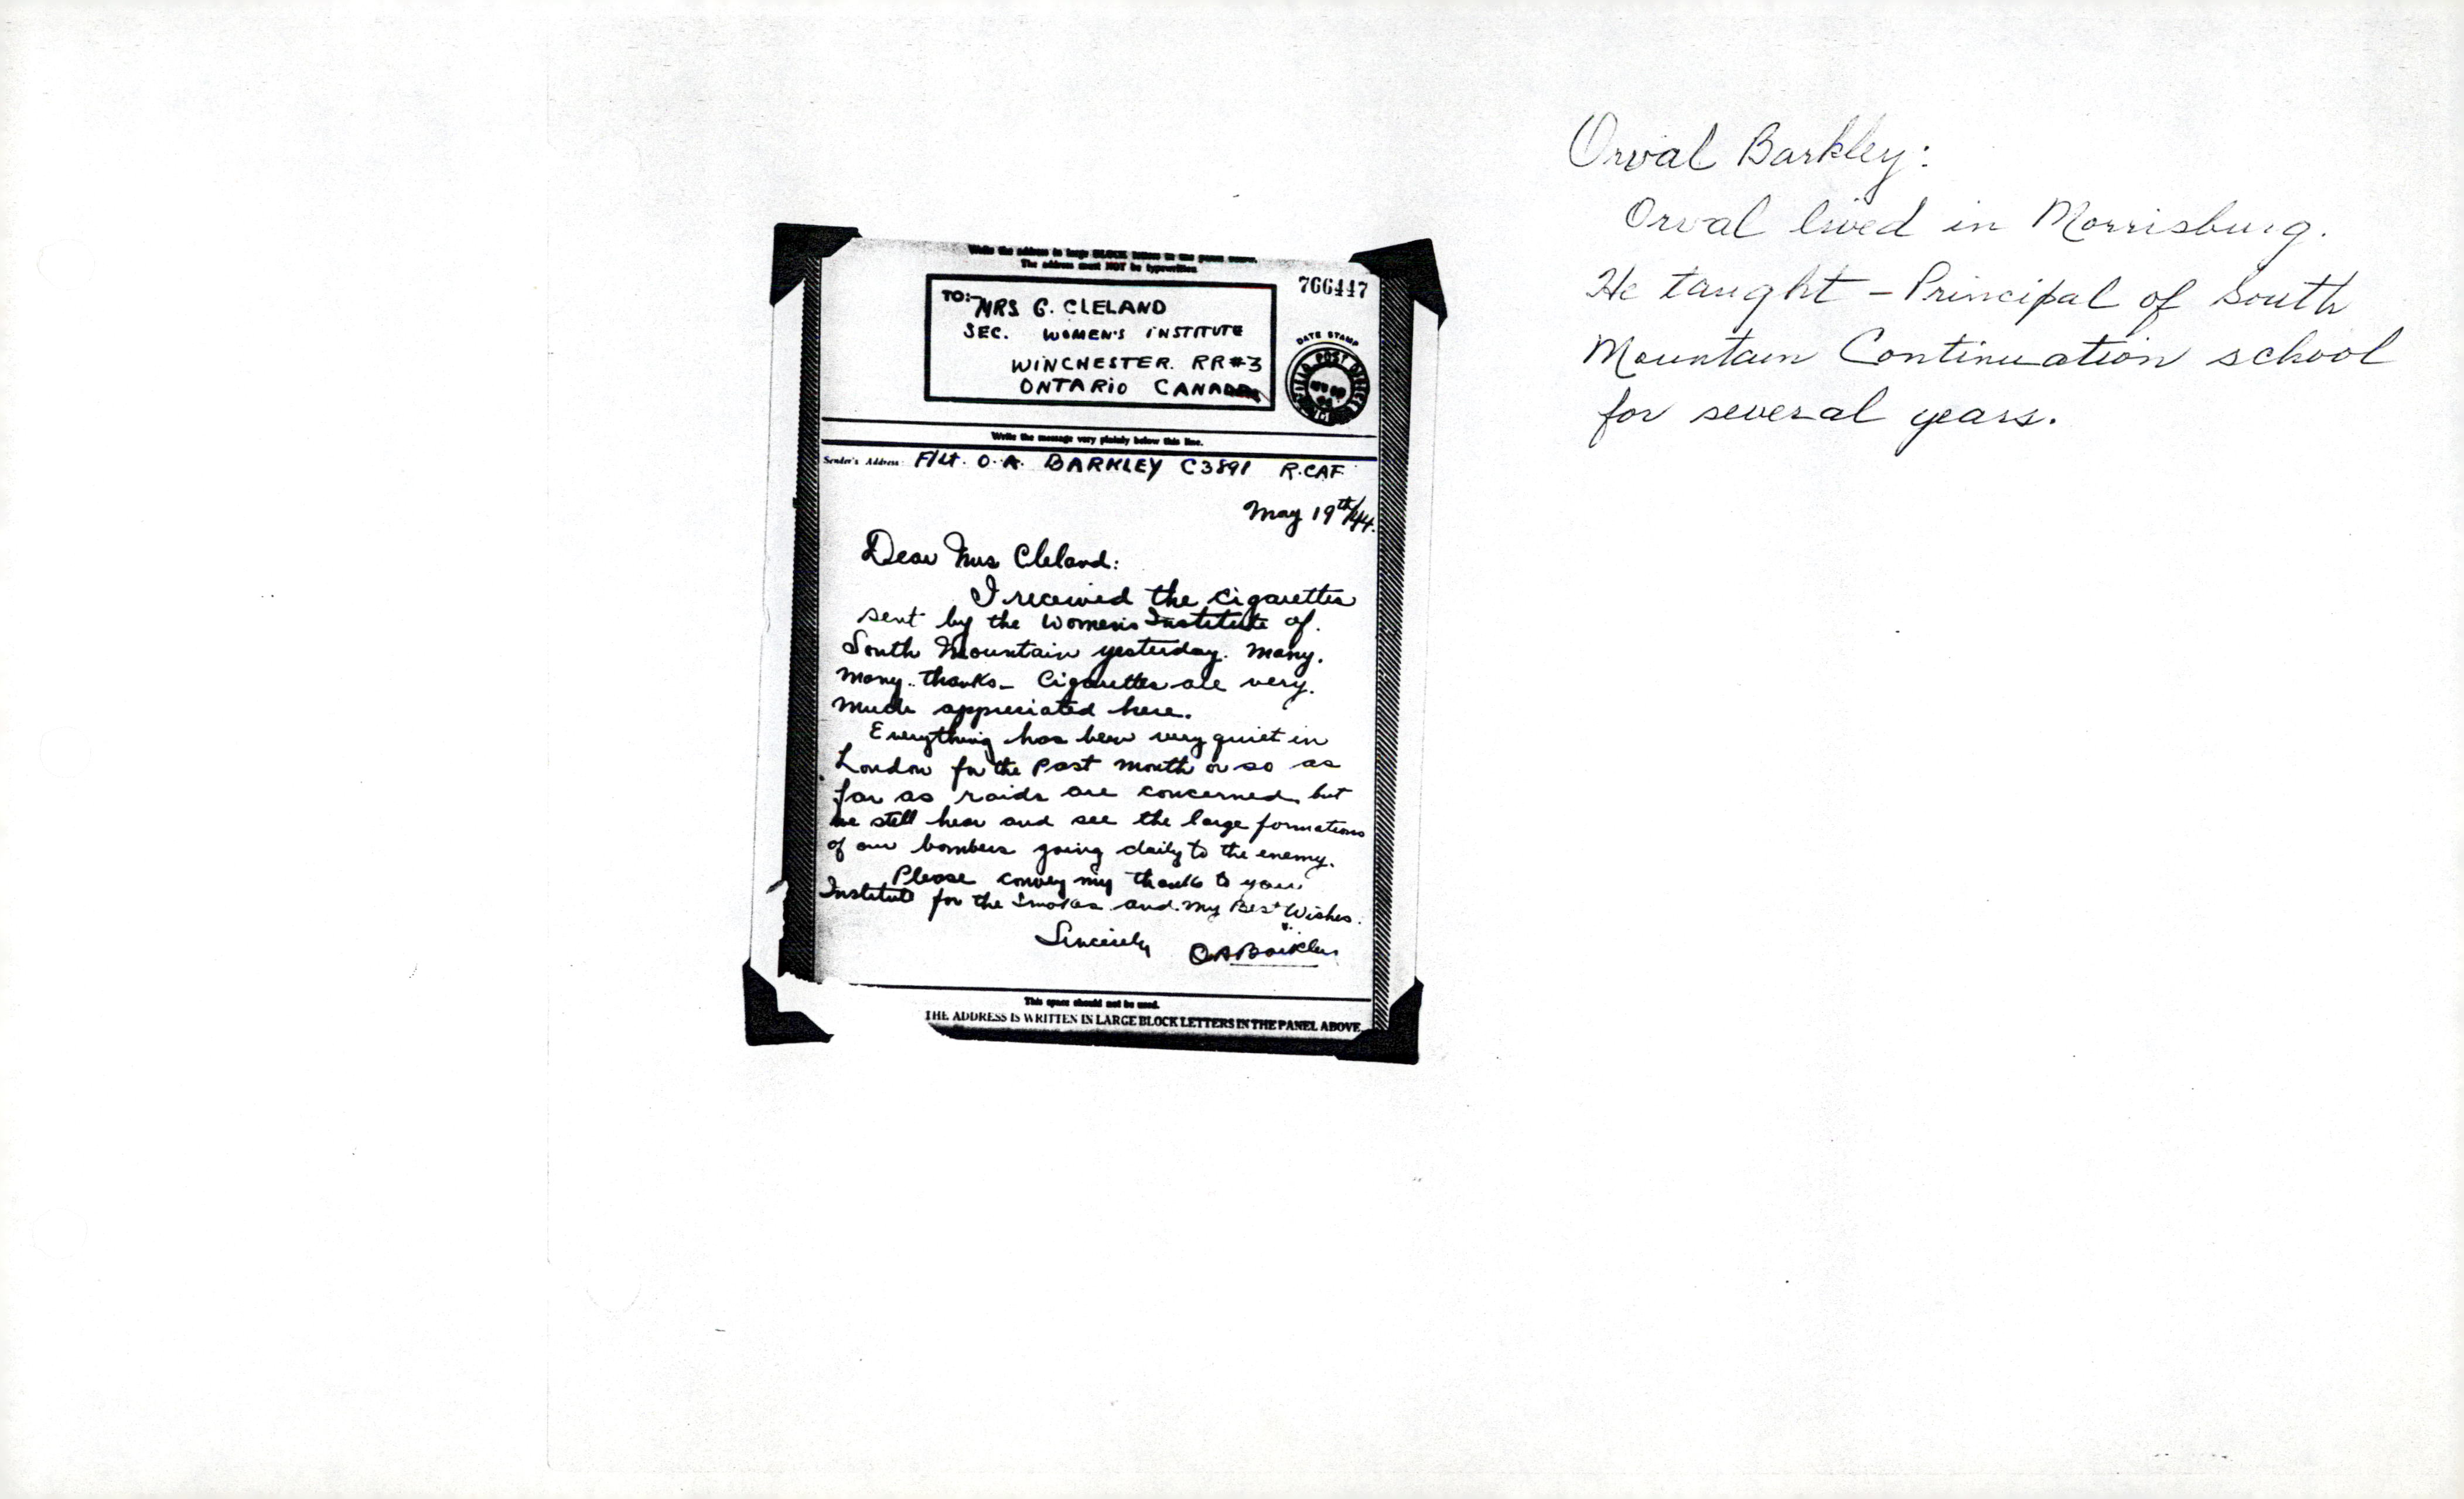 Write the address in large BLOCK letters in the panel below.
The address must NOT be typewritten
766447
TO:- MRS G. CLELAND
SEC. WOMEN'S INSTITUTE
WINCHESTER. RR#3
ONTARIO CANADA
DATE STAMP
POST OFFICE
Write the message very plainly below this line.
Sender's Address: F/Lt. O.A. BARKLEY C3891 R.CAF
May 19th/44.
Dear Mrs Cleland:
I received the cigarettes
sent by the Women's Institute of.
South Mountain yesterday. Many.
Many.. thanks- Cigarettes are very.
much appreciated here.
Everything has been very quiet in
London for the past month or so as
far as raids are concerned, but
we still hear and see the large formations
of our bombers going daily to the enemy.
Please convey my thanks to your
Institute for the Smokes and. My Best Wishes.
Sincerely OABarkley
This space should not be used.
THE ADDRESS IS WRITTEN IN LARGE BLOCK LETTERS IN THE PANEL ABOVE.
Orval Barkley:
Orval lived in Morrisburg.
He taught - Principal of South
Mountain Continuation school
for several years.